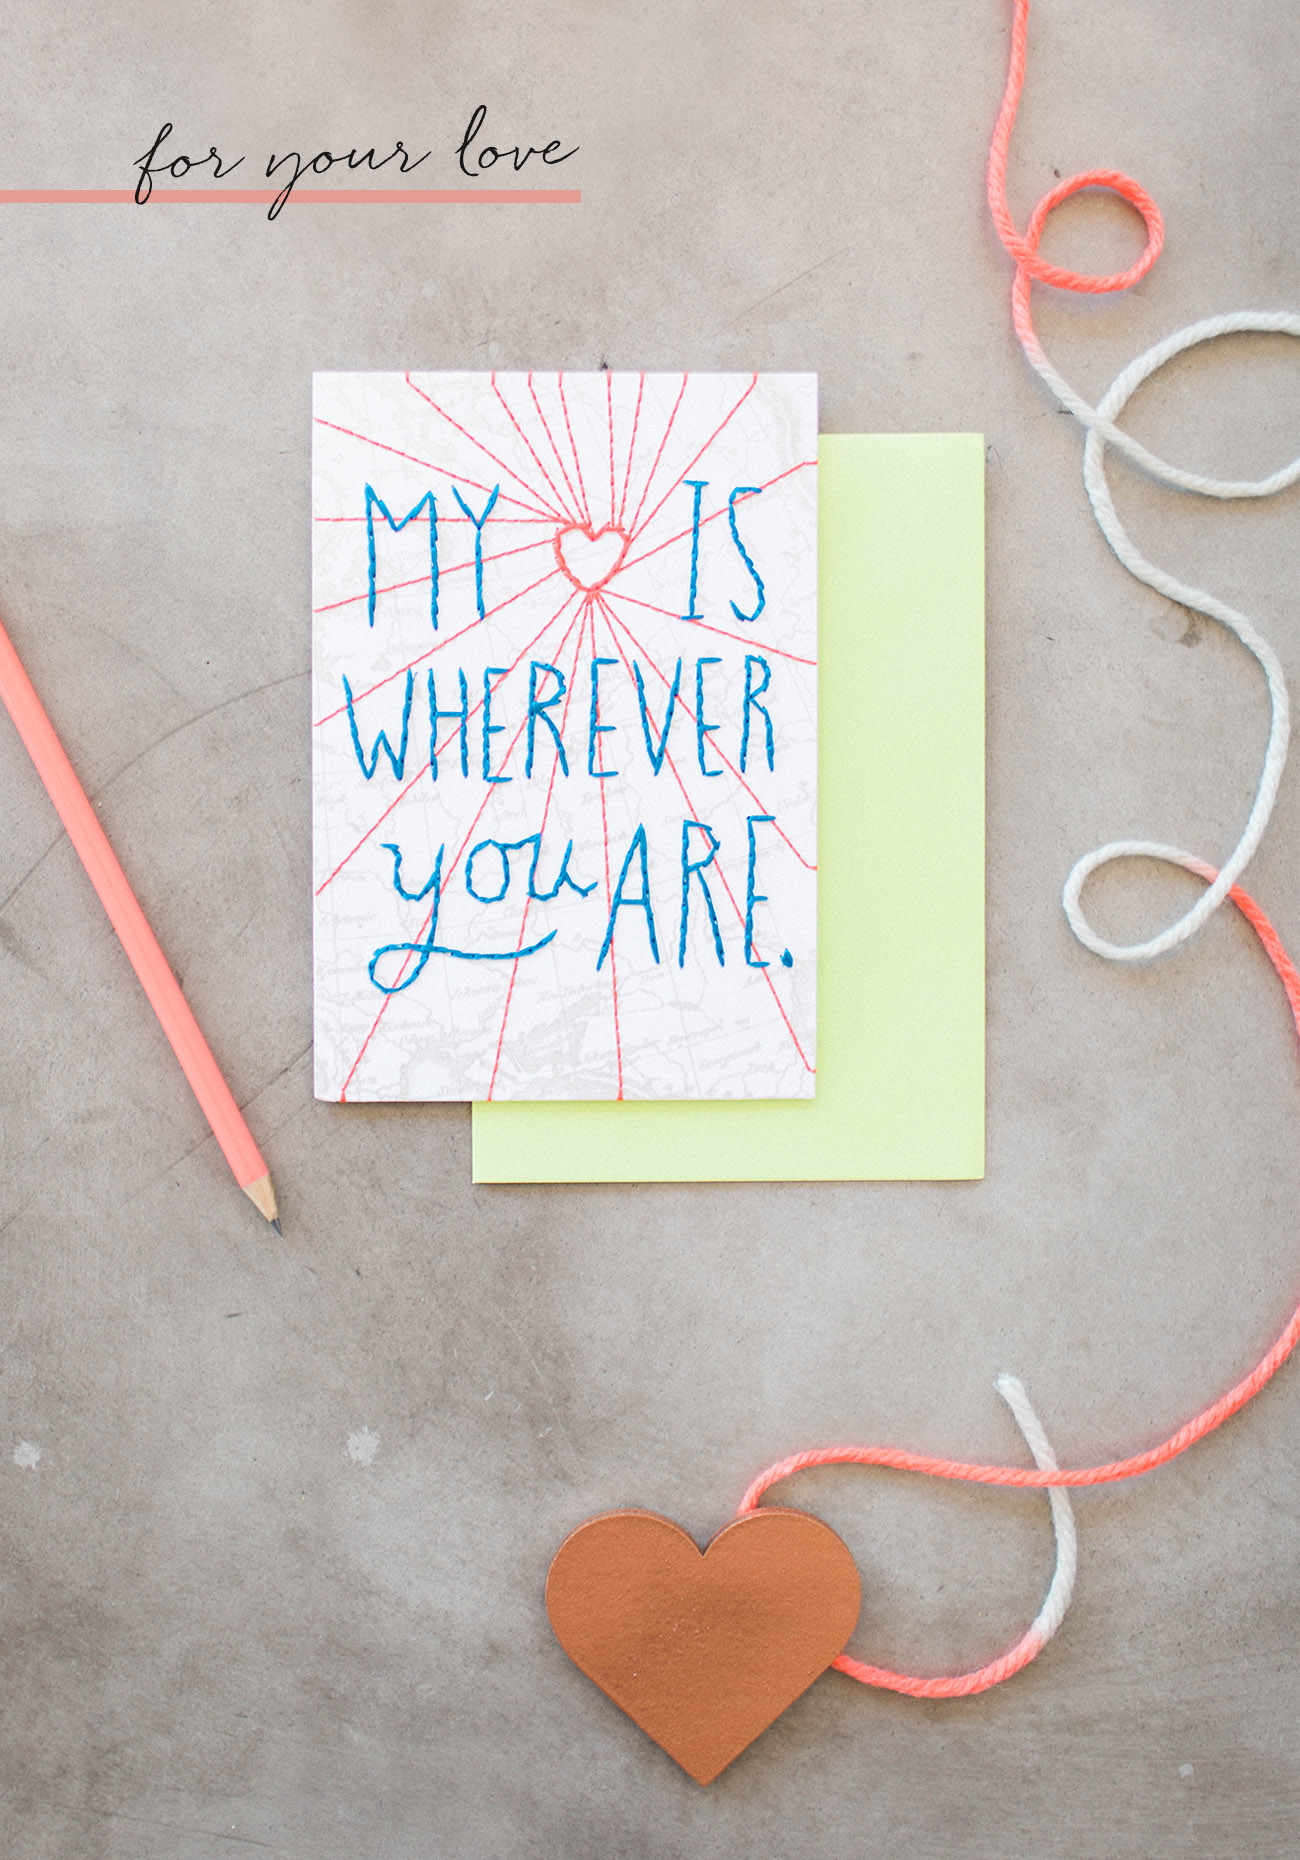 for your love
MY IS
WHEREVER
you ARE.